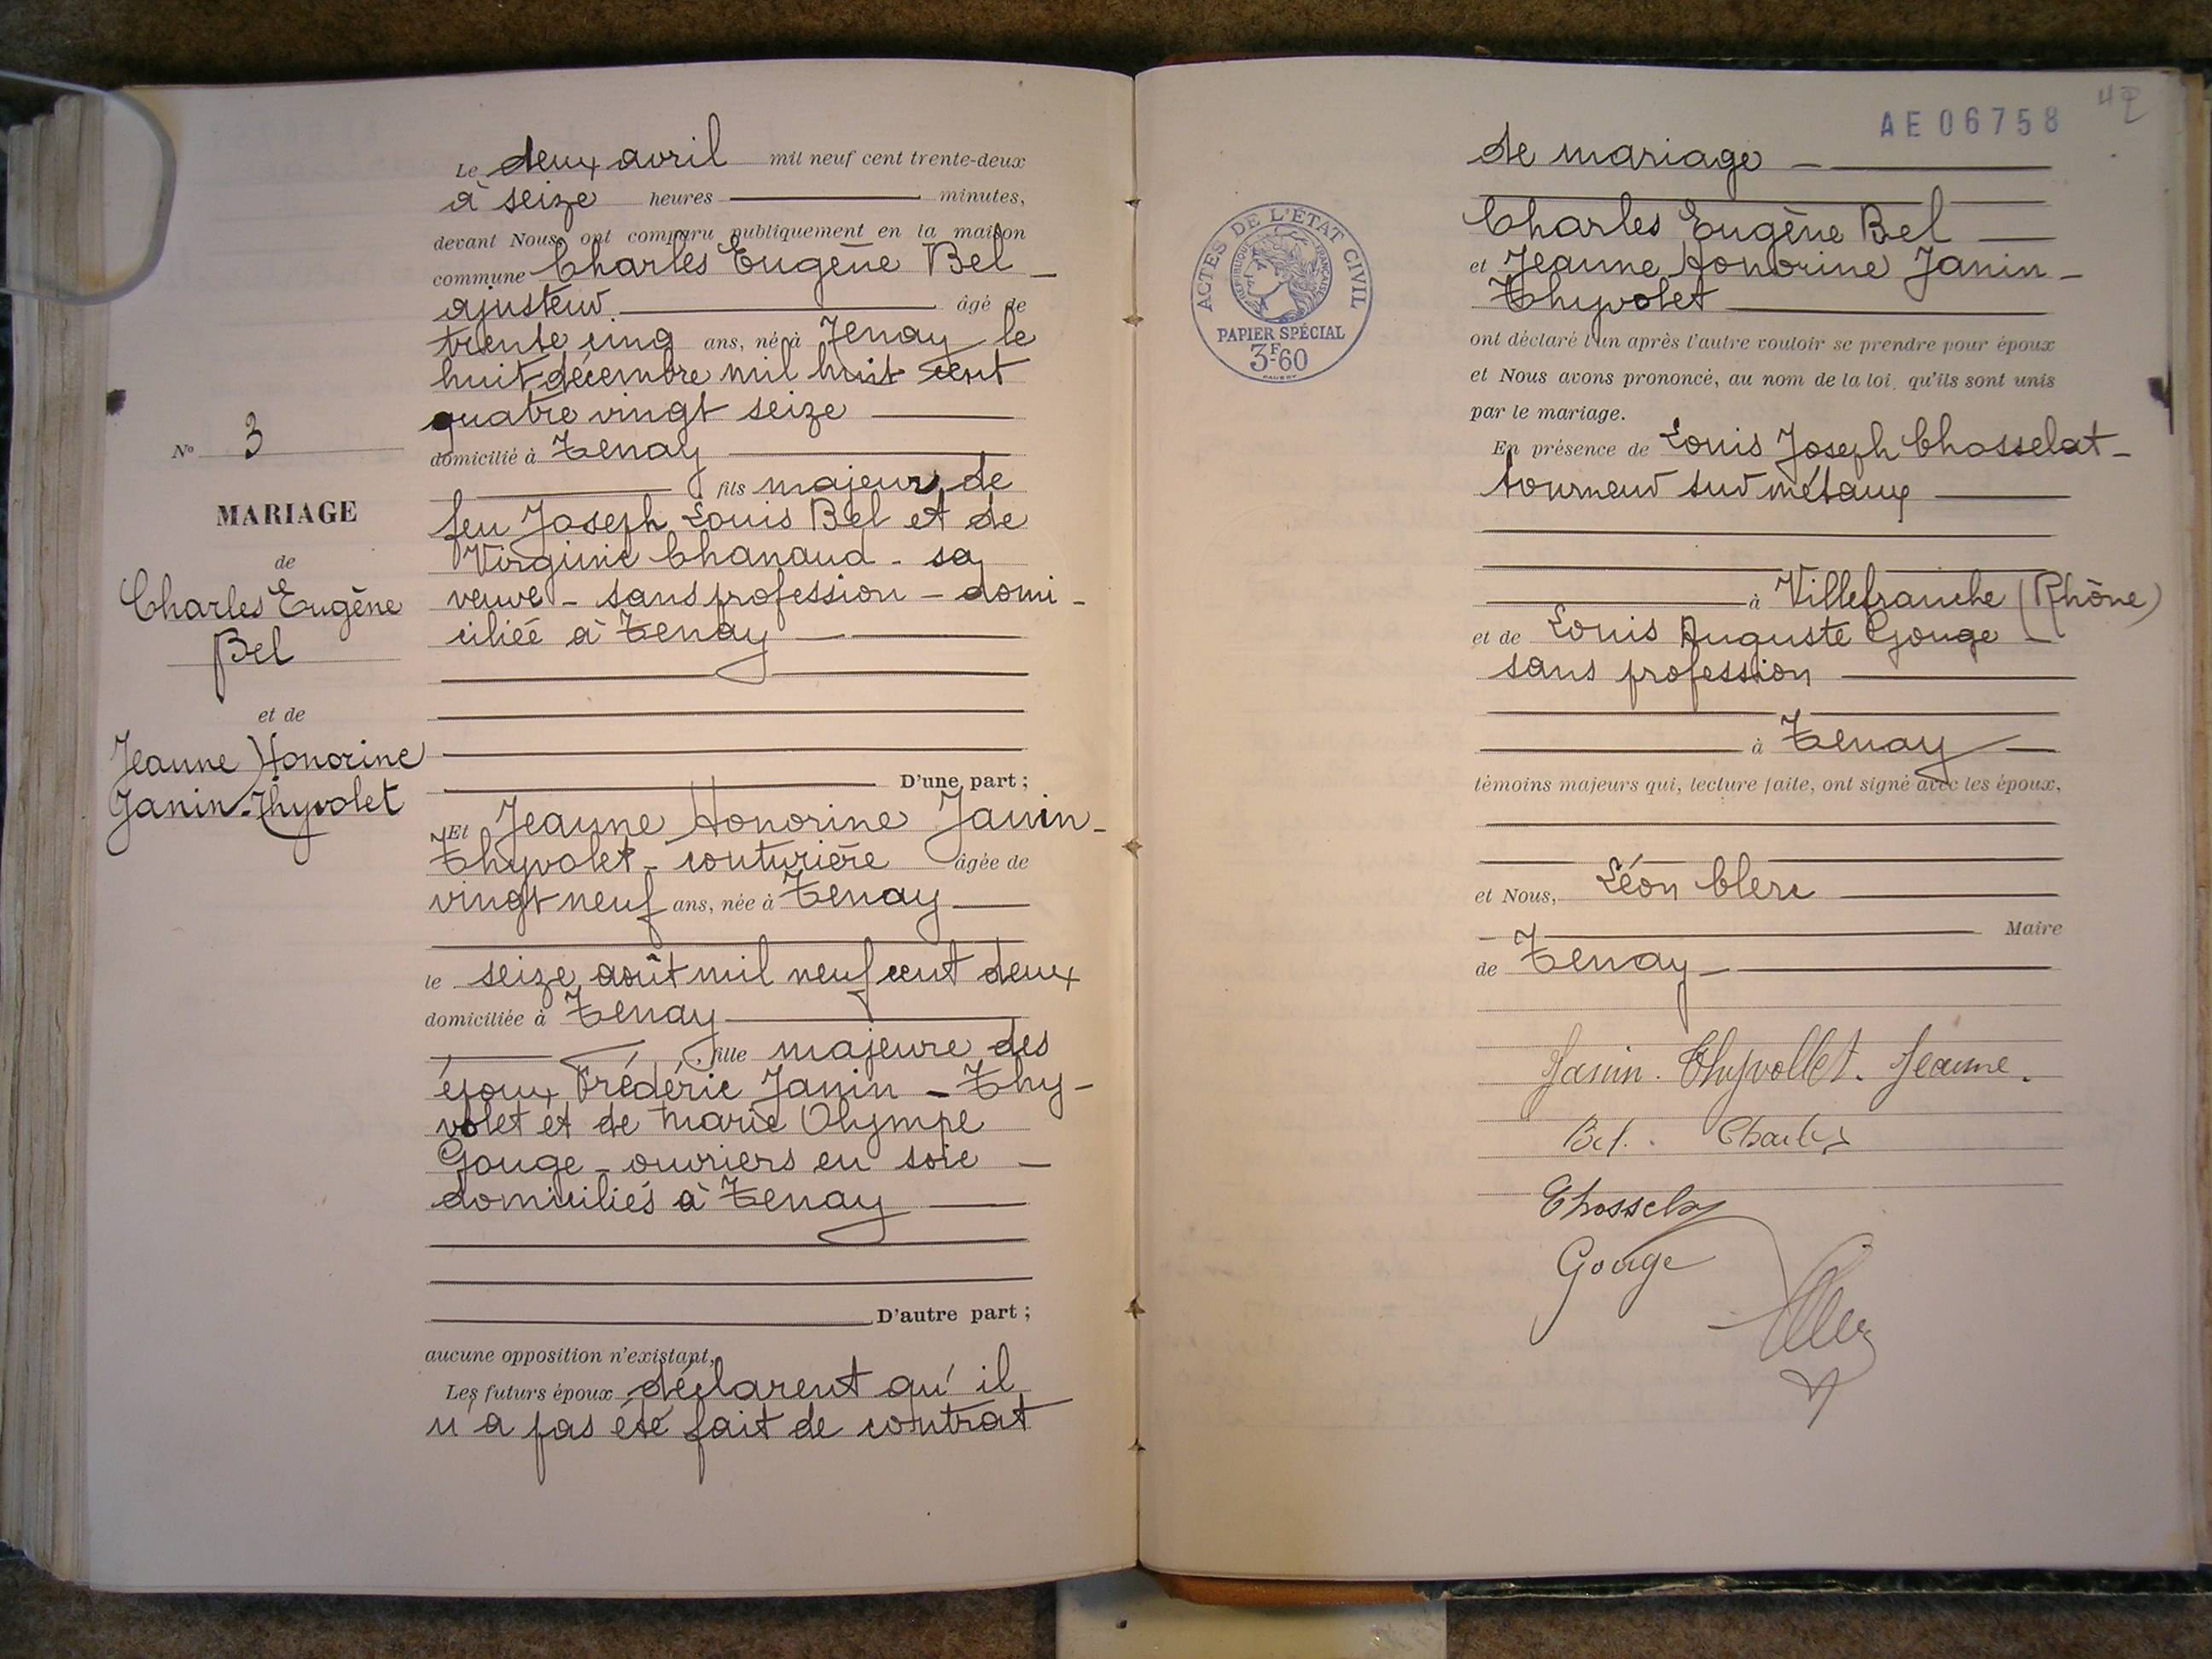 Le deux avril mil neuf cent trente-deux
à seize heures minutes,
devant Nous, ont comparu publiquement en la maison
commune Charles Eugène Bel
ajusteur. âgé de
trente cinq ans, né à Tenay le
huit décembre mil huit cent
quatre vingt seize
domicilié à Tenay
fils majeur de
feu Joseph Louis Bel et de
Virginie Chanaud - sa
veuve - sans profession - domi-
ciliée à Tenay
D'une part ;
Et Jeanne Honorine Janin-
Thyvolet - couturière âgée de
vingt neuf ans, née à Tenay
le seize août mil neuf cent deux
domiciliée à Tenay
fille majeure des
époux Frédéric Janin - Thy-
volet et de Marie Olympe
Gouge - ouvriers en soie
domiciliés à Tenay
D'autre part ;
aucune opposition n'existant,
Les futurs époux déclarent qu'il
n'a pas été fait de contrat
N° 3
MARIAGE
de
Charles Eugène
Bel
et de
Jeanne Honorine
Janin-Thyvolet
AE 06758
de mariage
Charles Eugène Bel
et Jeanne Honorine Janin-
Thyvolet
ont déclaré l'un après l'autre vouloir se prendre pour époux
et Nous avons prononcé, au nom de la loi, qu'ils sont unis
par le mariage.
En présence de Louis Joseph Chosselat -
tourneur sur métaux
à Villefranche (Rhône)
et de Louis Auguste Gouge
sans profession
à Tenay
témoins majeurs qui, lecture faite, ont signé avec les époux,
et Nous, Léon Clerc
Maire
de Tenay
Janin. Thyvollet. Jeanne.
Bel. Charles
Gouge
ACTES DE L'ÉTAT CIVIL
RÉPUBLIQUE FRANÇAISE
PAPIER SPÉCIAL
3F60